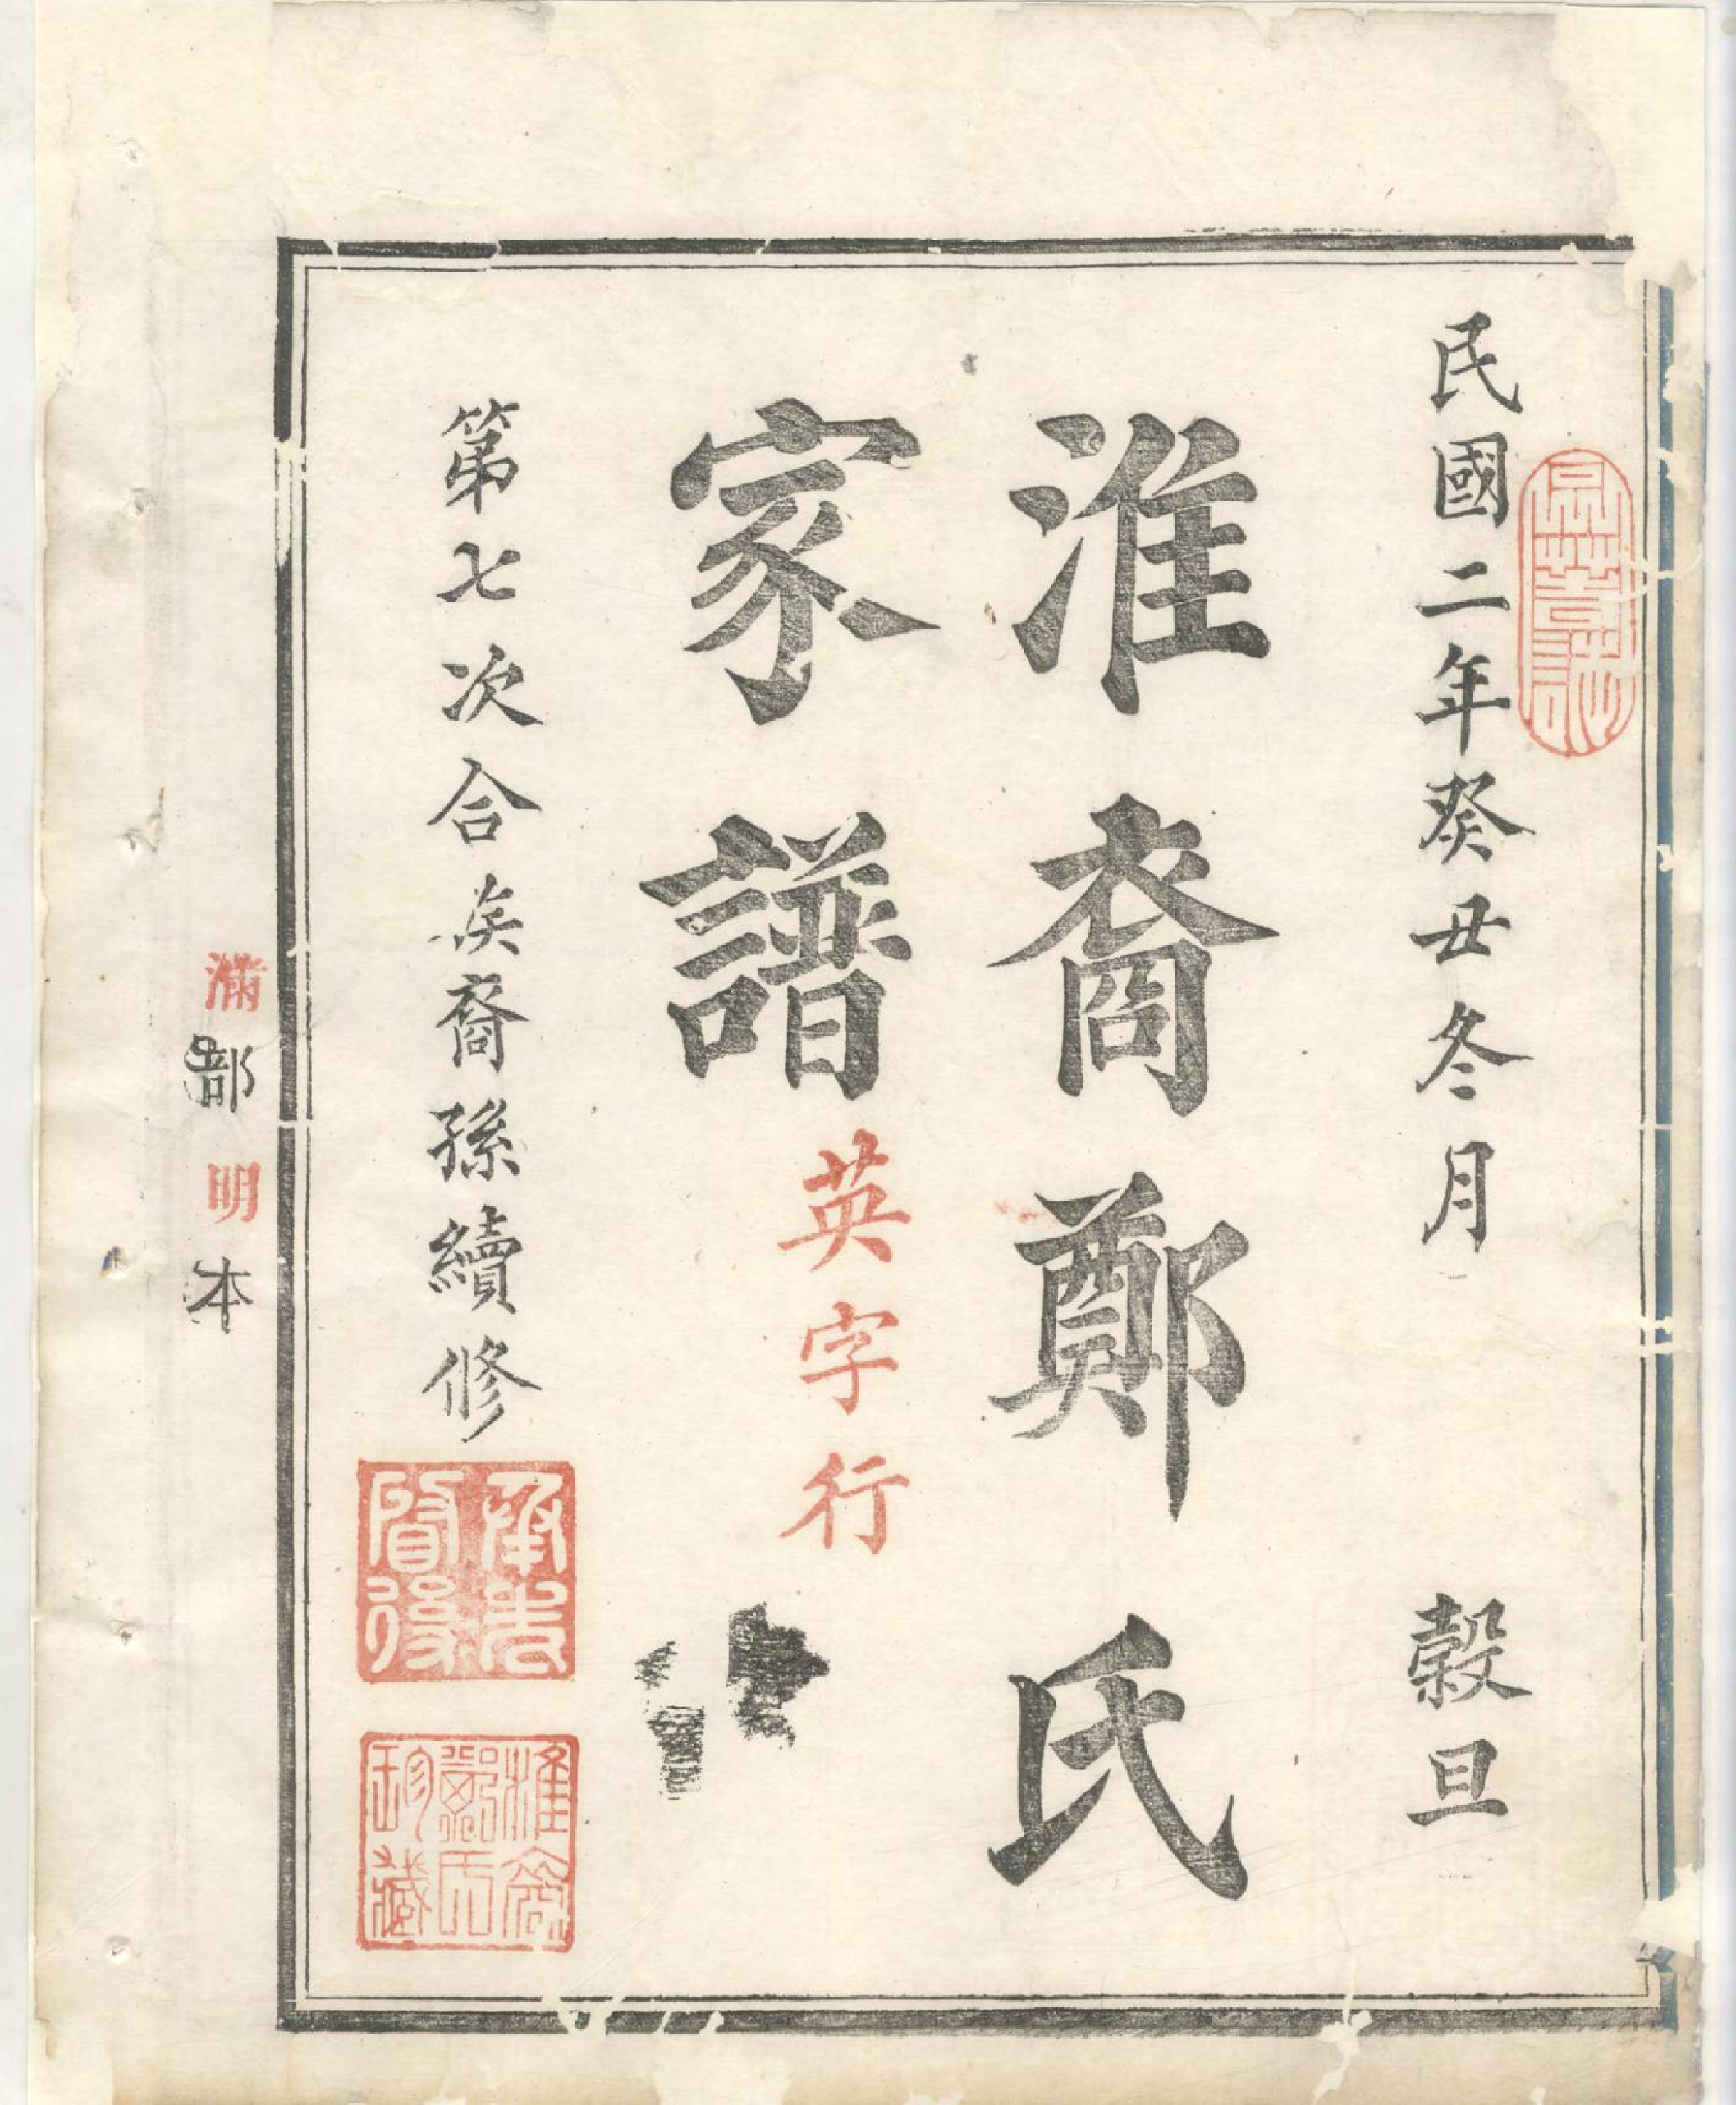 民國二年癸丑冬月 穀旦
淮裔鄭氏
家譜 英字行
第七次合族裔孫續修
承先啓後
淮裔鄭氏珍藏
滿部明本